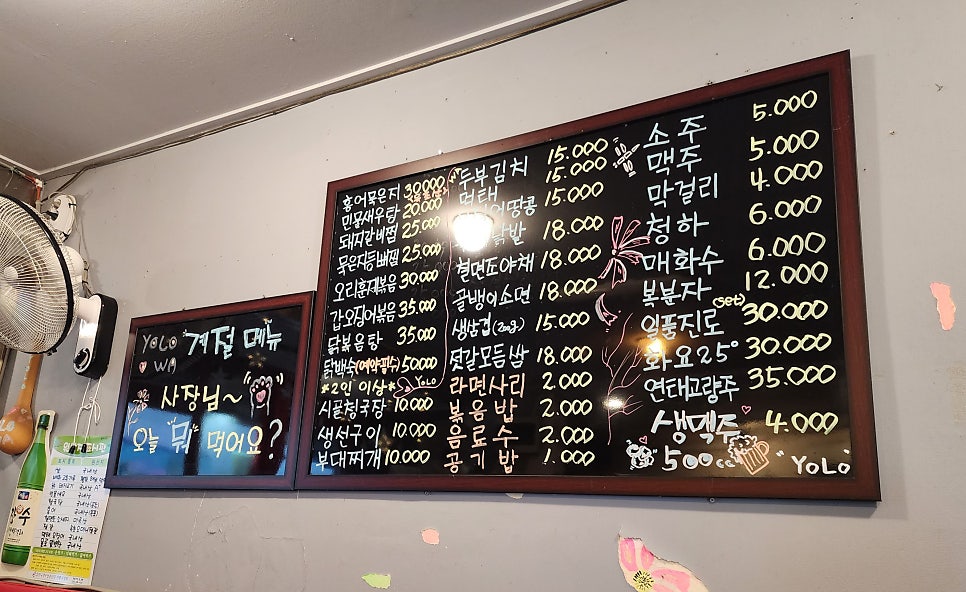 YOLO 계절 메뉴
WA
사장님~
오늘 뭐 먹어요?
홍어묵은지 30.000
민물새우탕 20.000
돼지갈비찜 25.000
묵은지등뼈찜 25.000
오리훈제볶음 30.000
갑오징어볶음 35.000
닭볶음탕 35.000
닭백숙(예약필수) 50.000
*2인 이상*
YOLO
시골청국장 10.000
생선구이 10.000
부대찌개 10.000
두부김치 15.000
먹태 15.000
땅콩 15.000
닭발 18.000
쫄면조야채 18.000
골뱅이소면 18.000
생삼겹(200g) 15.000
젓갈모듬쌈 18.000
라면사리 2.000
볶음밥 2.000
음료수 2.000
공기밥 1.000
소주 5.000
맥주 5.000
막걸리 4.000
청하 6.000
매화수 6.000
복분자 12.000
일품진로 (set) 30.000
화요25° 30.000
연태고량주 35.000
생맥주 4.000
500cc
"YOLO"